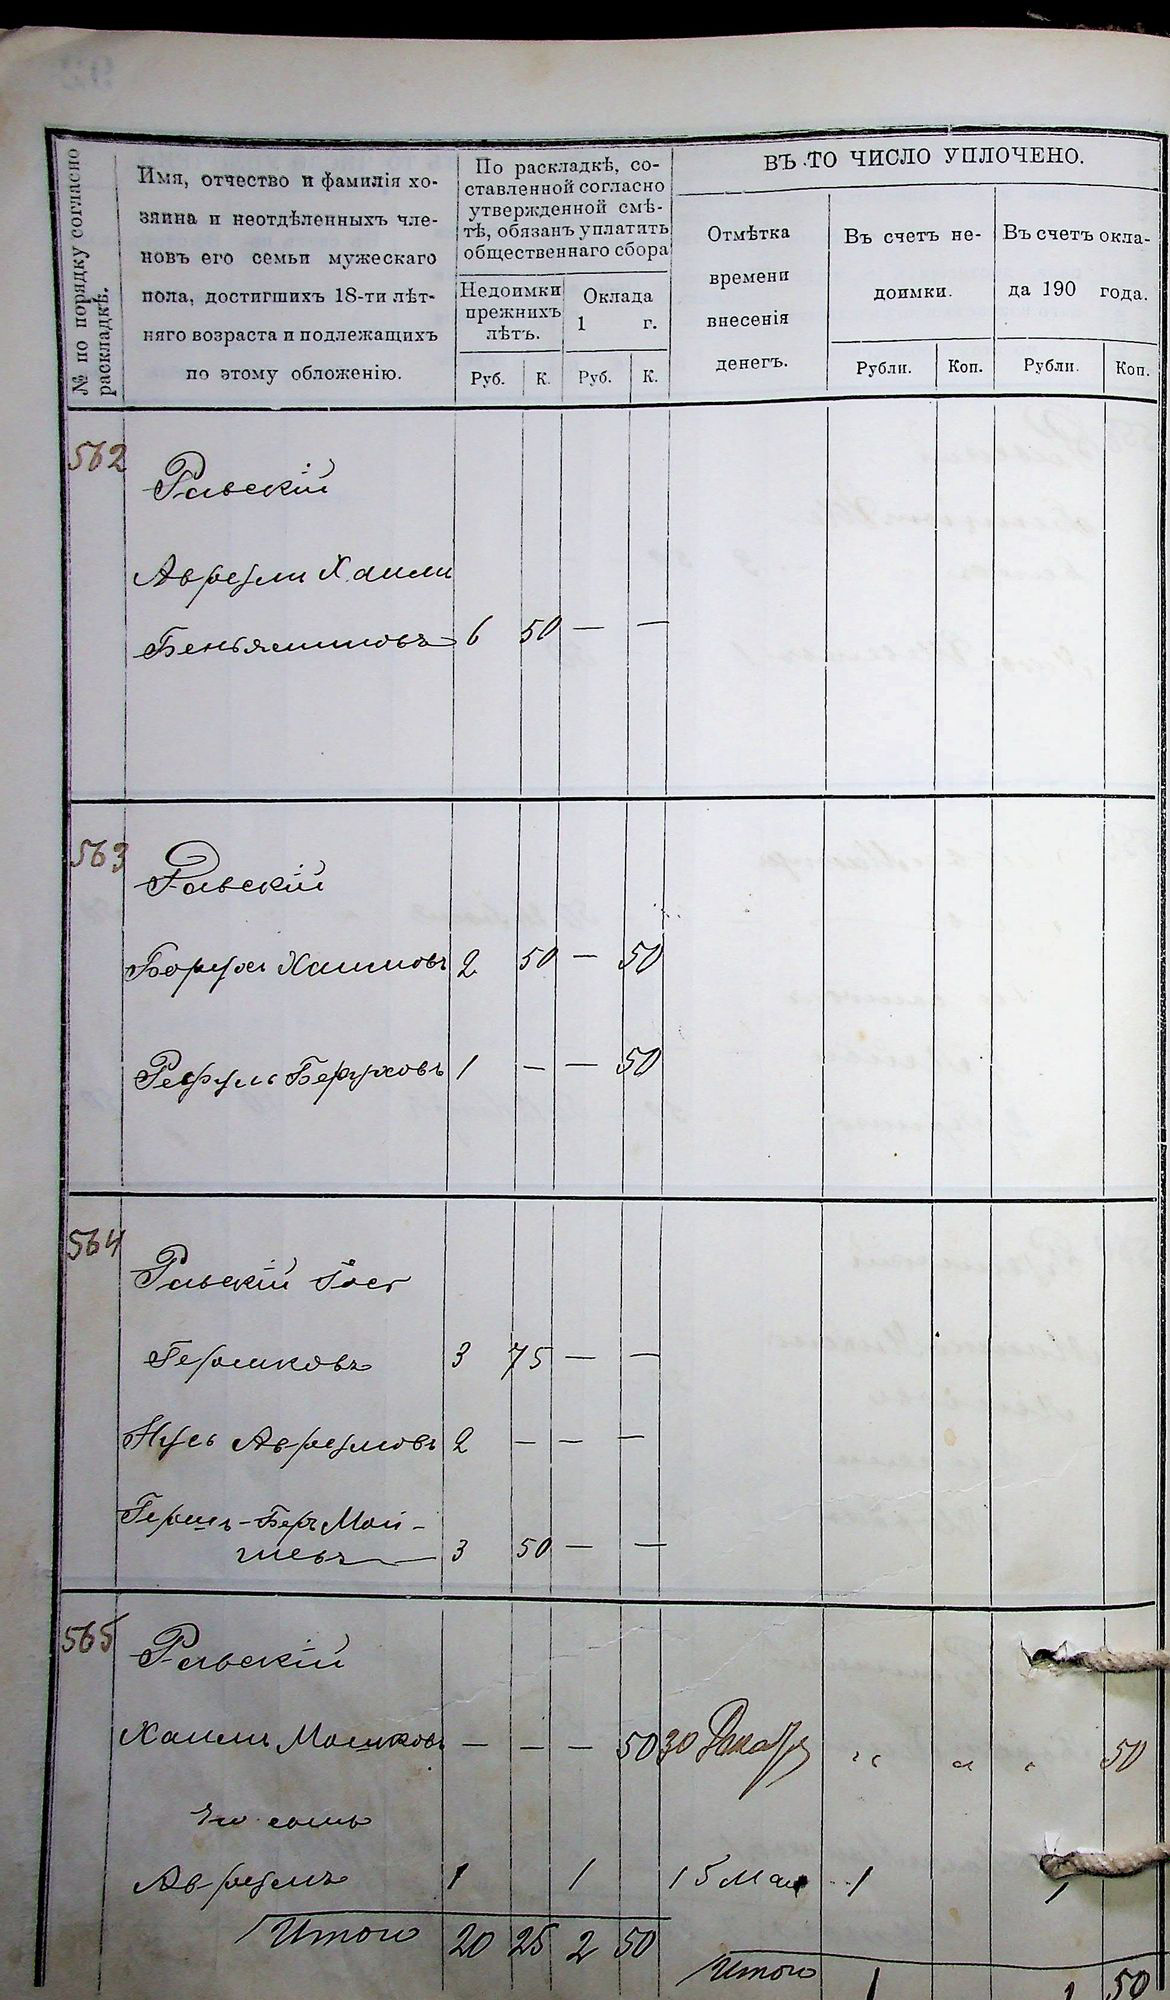 № по порядку согласно
раскладкѣ.
Имя, отчество и фамилія хо-
зяина и неотдѣленныхъ чле-
новъ его семьи мужескаго
пола, достигшихъ 18-ти лѣт-
няго возраста и подлежащихъ
по этому обложенію.
По раскладкѣ, со-
ставленной согласно
утвержденной смѣ-
тѣ, обязанъ уплатить
общественнаго сбора
Недоимки
прежнихъ
лѣтъ.
Оклада
1 г.
Руб. К. Руб. К.
ВЪ ТО ЧИСЛО УПЛОЧЕНО.
Отмѣтка
времени
внесенія
денегъ.
Въ счетъ не-
доимки.
Въ счетъ окла-
да 190 года.
Рубли. Коп. Рубли. Коп.
562
Равскій
Аврумъ Хаимъ
Беньяминовъ 6 50 — —
563
Равскій
Борухъ Хаимовъ 2 50 — 50
Рефуль Боруховъ 1 — — 50
564
Равскій Іось
Гершковъ 3 75 — —
Нусь Аврумовъ 2 — — —
Гершъ-Беръ Мой-
шевъ 3 50 — —
565
Равскій
Хаимъ Мошковъ — — — 50 30 Декабр " " " 50
Его сынъ
Аврумъ 1 1 15 Мая 1 1
Итого 20 25 2 50
Итого 1 1 50